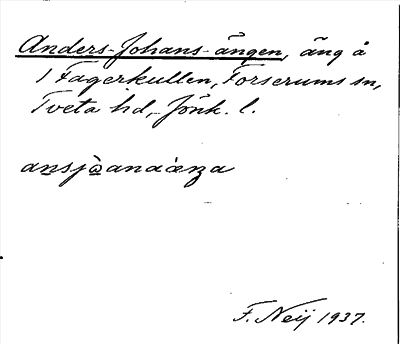 Anders-Johans-ängen, äng å
1 Fagerkullen, Forserums sn,
Tveta hd, Jönk. l.
F. Neij 1937.